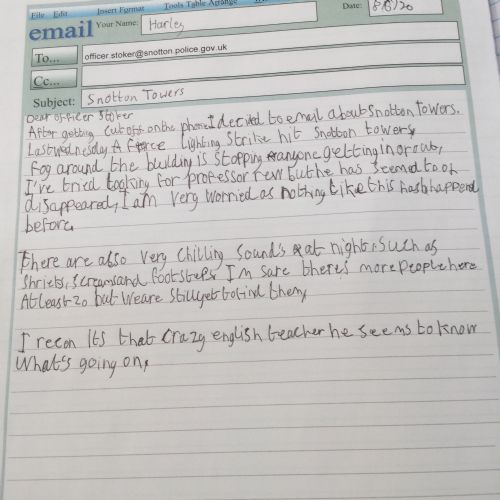 File Edit Insert Format Tools Table Arrange
email Your Name: Harley Date: 8/6/20
To... officer.stoker@snotton.police.gov.uk
Cc...
Subject: Snotton Towers
Dear officer Stoker
After getting cut off on the phone I decided to email about Snotton Towers.
Last wednesday A fierce lighting Strike hit Snotton towers,
Fog around the building is stopping anyone getting in or out,
I've tried looking for professor rew but he has seemed to of
disappeared, I am very worried as nothing like this has happend
before.
There are also very chilling sounds at night. Such as
Shriets, screams and footsteps I'm sure there's more people here
At least 20 but we are still yet to find them,
I recon It's that crazy english teacher he seems to know
What's going on,